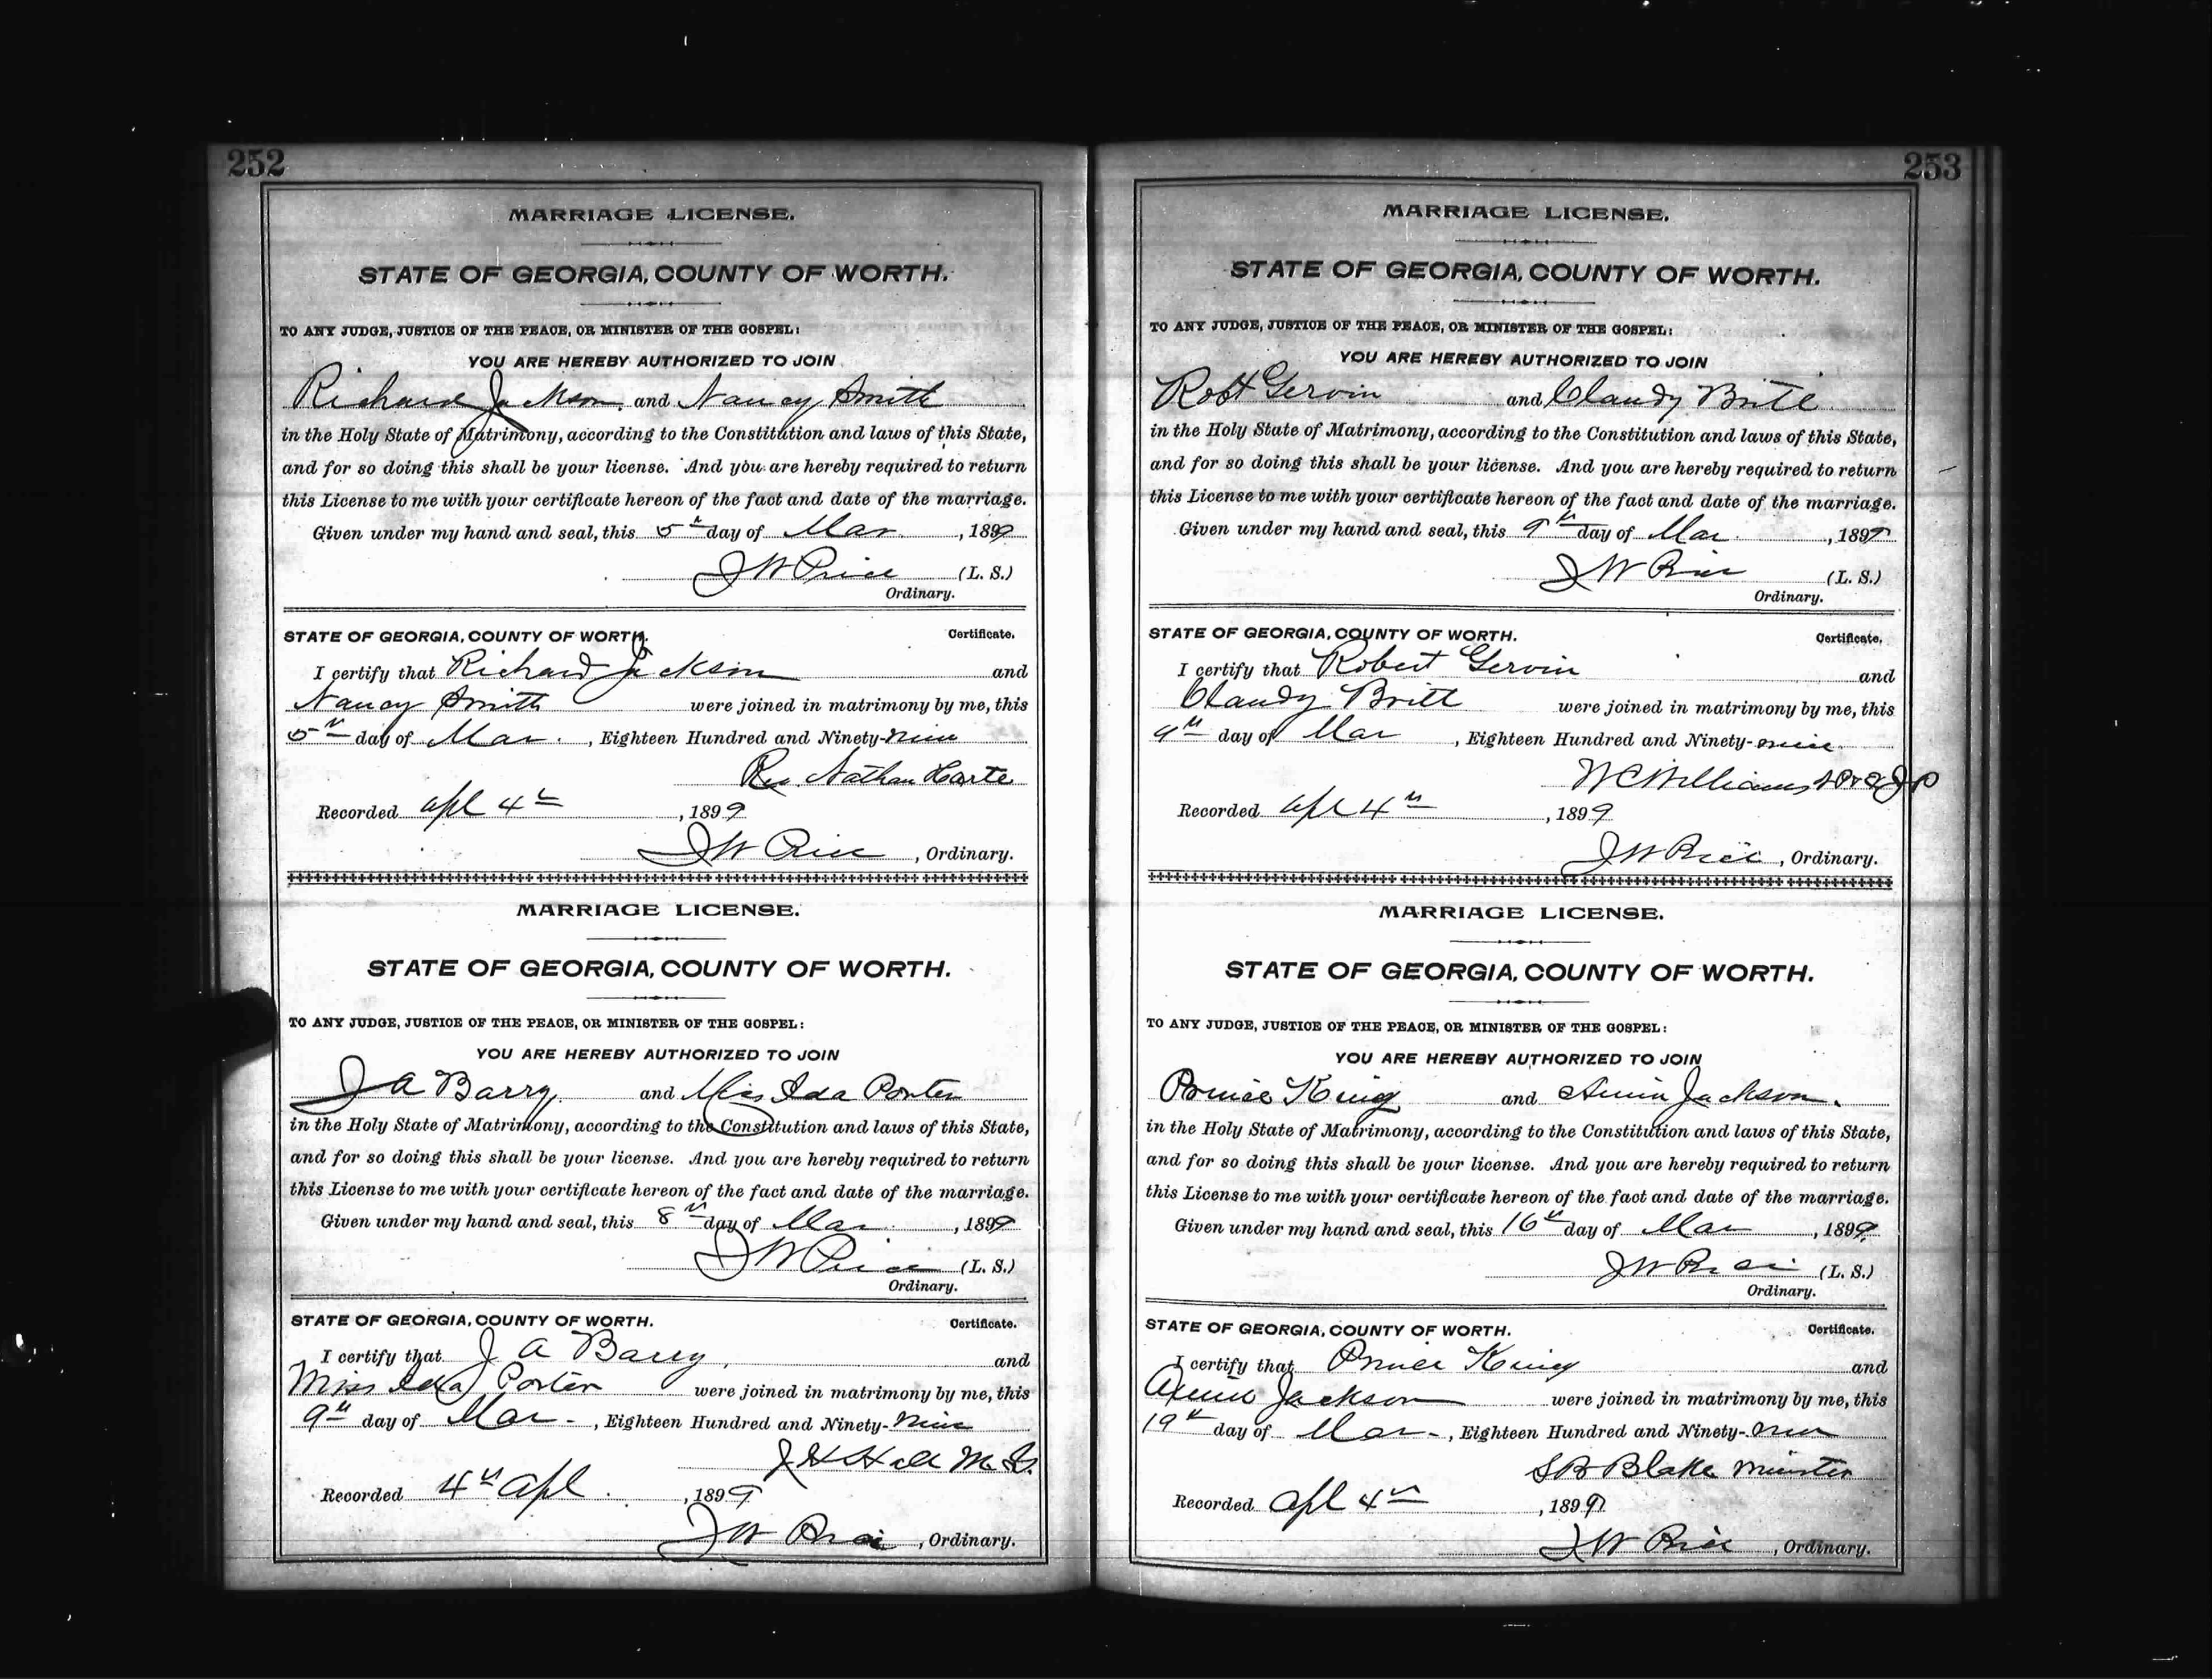 252
MARRIAGE LICENSE.
STATE OF GEORGIA, COUNTY OF WORTH.
TO ANY JUDGE, JUSTICE OF THE PEACE, OR MINISTER OF THE GOSPEL:
YOU ARE HEREBY AUTHORIZED TO JOIN
Richard Jackson and Nancy Smith
in the Holy State of Matrimony, according to the Constitution and laws of this State,
and for so doing this shall be your license. And you are hereby required to return
this License to me with your certificate hereon of the fact and date of the marriage.
Given under my hand and seal, this 5th day of Mar , 1899
J W Price (L. S.)
Ordinary.
STATE OF GEORGIA, COUNTY OF WORTH. Certificate.
I certify that Richard Jackson and
Nancy Smith were joined in matrimony by me, this
5th day of Mar. , Eighteen Hundred and Ninety-nine
Rev. Nathan Harte
Recorded apl 4th , 1899
J W Price , Ordinary.
MARRIAGE LICENSE.
STATE OF GEORGIA, COUNTY OF WORTH.
TO ANY JUDGE, JUSTICE OF THE PEACE, OR MINISTER OF THE GOSPEL:
YOU ARE HEREBY AUTHORIZED TO JOIN
J A Barry and Miss Ida Porter
in the Holy State of Matrimony, according to the Constitution and laws of this State,
and for so doing this shall be your license. And you are hereby required to return
this License to me with your certificate hereon of the fact and date of the marriage.
Given under my hand and seal, this 8th day of Mar , 1899
J W Price (L. S.)
Ordinary.
STATE OF GEORGIA, COUNTY OF WORTH. Certificate.
I certify that J A Barry, and
Miss Ida Porter were joined in matrimony by me, this
9th day of Mar- , Eighteen Hundred and Ninety-nine
J H Hall M. G.
Recorded 4th apl . , 1899
J W Price , Ordinary.
253
MARRIAGE LICENSE.
STATE OF GEORGIA, COUNTY OF WORTH.
TO ANY JUDGE, JUSTICE OF THE PEACE, OR MINISTER OF THE GOSPEL:
YOU ARE HEREBY AUTHORIZED TO JOIN
Robt Gervin and Claudy Britt
in the Holy State of Matrimony, according to the Constitution and laws of this State,
and for so doing this shall be your license. And you are hereby required to return
this License to me with your certificate hereon of the fact and date of the marriage.
Given under my hand and seal, this 9th day of Mar. , 1899
J W Price (L. S.)
Ordinary.
STATE OF GEORGIA, COUNTY OF WORTH. Certificate.
I certify that Robert Gervin and
Claudy Britt were joined in matrimony by me, this
9th day of Mar , Eighteen Hundred and Ninety-nine
W C Williams J P
Recorded apl 4th , 1899
J W Price , Ordinary.
MARRIAGE LICENSE.
STATE OF GEORGIA, COUNTY OF WORTH.
TO ANY JUDGE, JUSTICE OF THE PEACE, OR MINISTER OF THE GOSPEL:
YOU ARE HEREBY AUTHORIZED TO JOIN
Prince King and Annie Jackson.
in the Holy State of Matrimony, according to the Constitution and laws of this State,
and for so doing this shall be your license. And you are hereby required to return
this License to me with your certificate hereon of the fact and date of the marriage.
Given under my hand and seal, this 16th day of Mar , 1899
J W Price (L. S.)
Ordinary.
STATE OF GEORGIA, COUNTY OF WORTH. Certificate.
I certify that Prince King and
Annie Jackson were joined in matrimony by me, this
19th day of Mar- , Eighteen Hundred and Ninety-nine
S B Blake Minister
Recorded Apl 4th , 1899
J W Price , Ordinary.